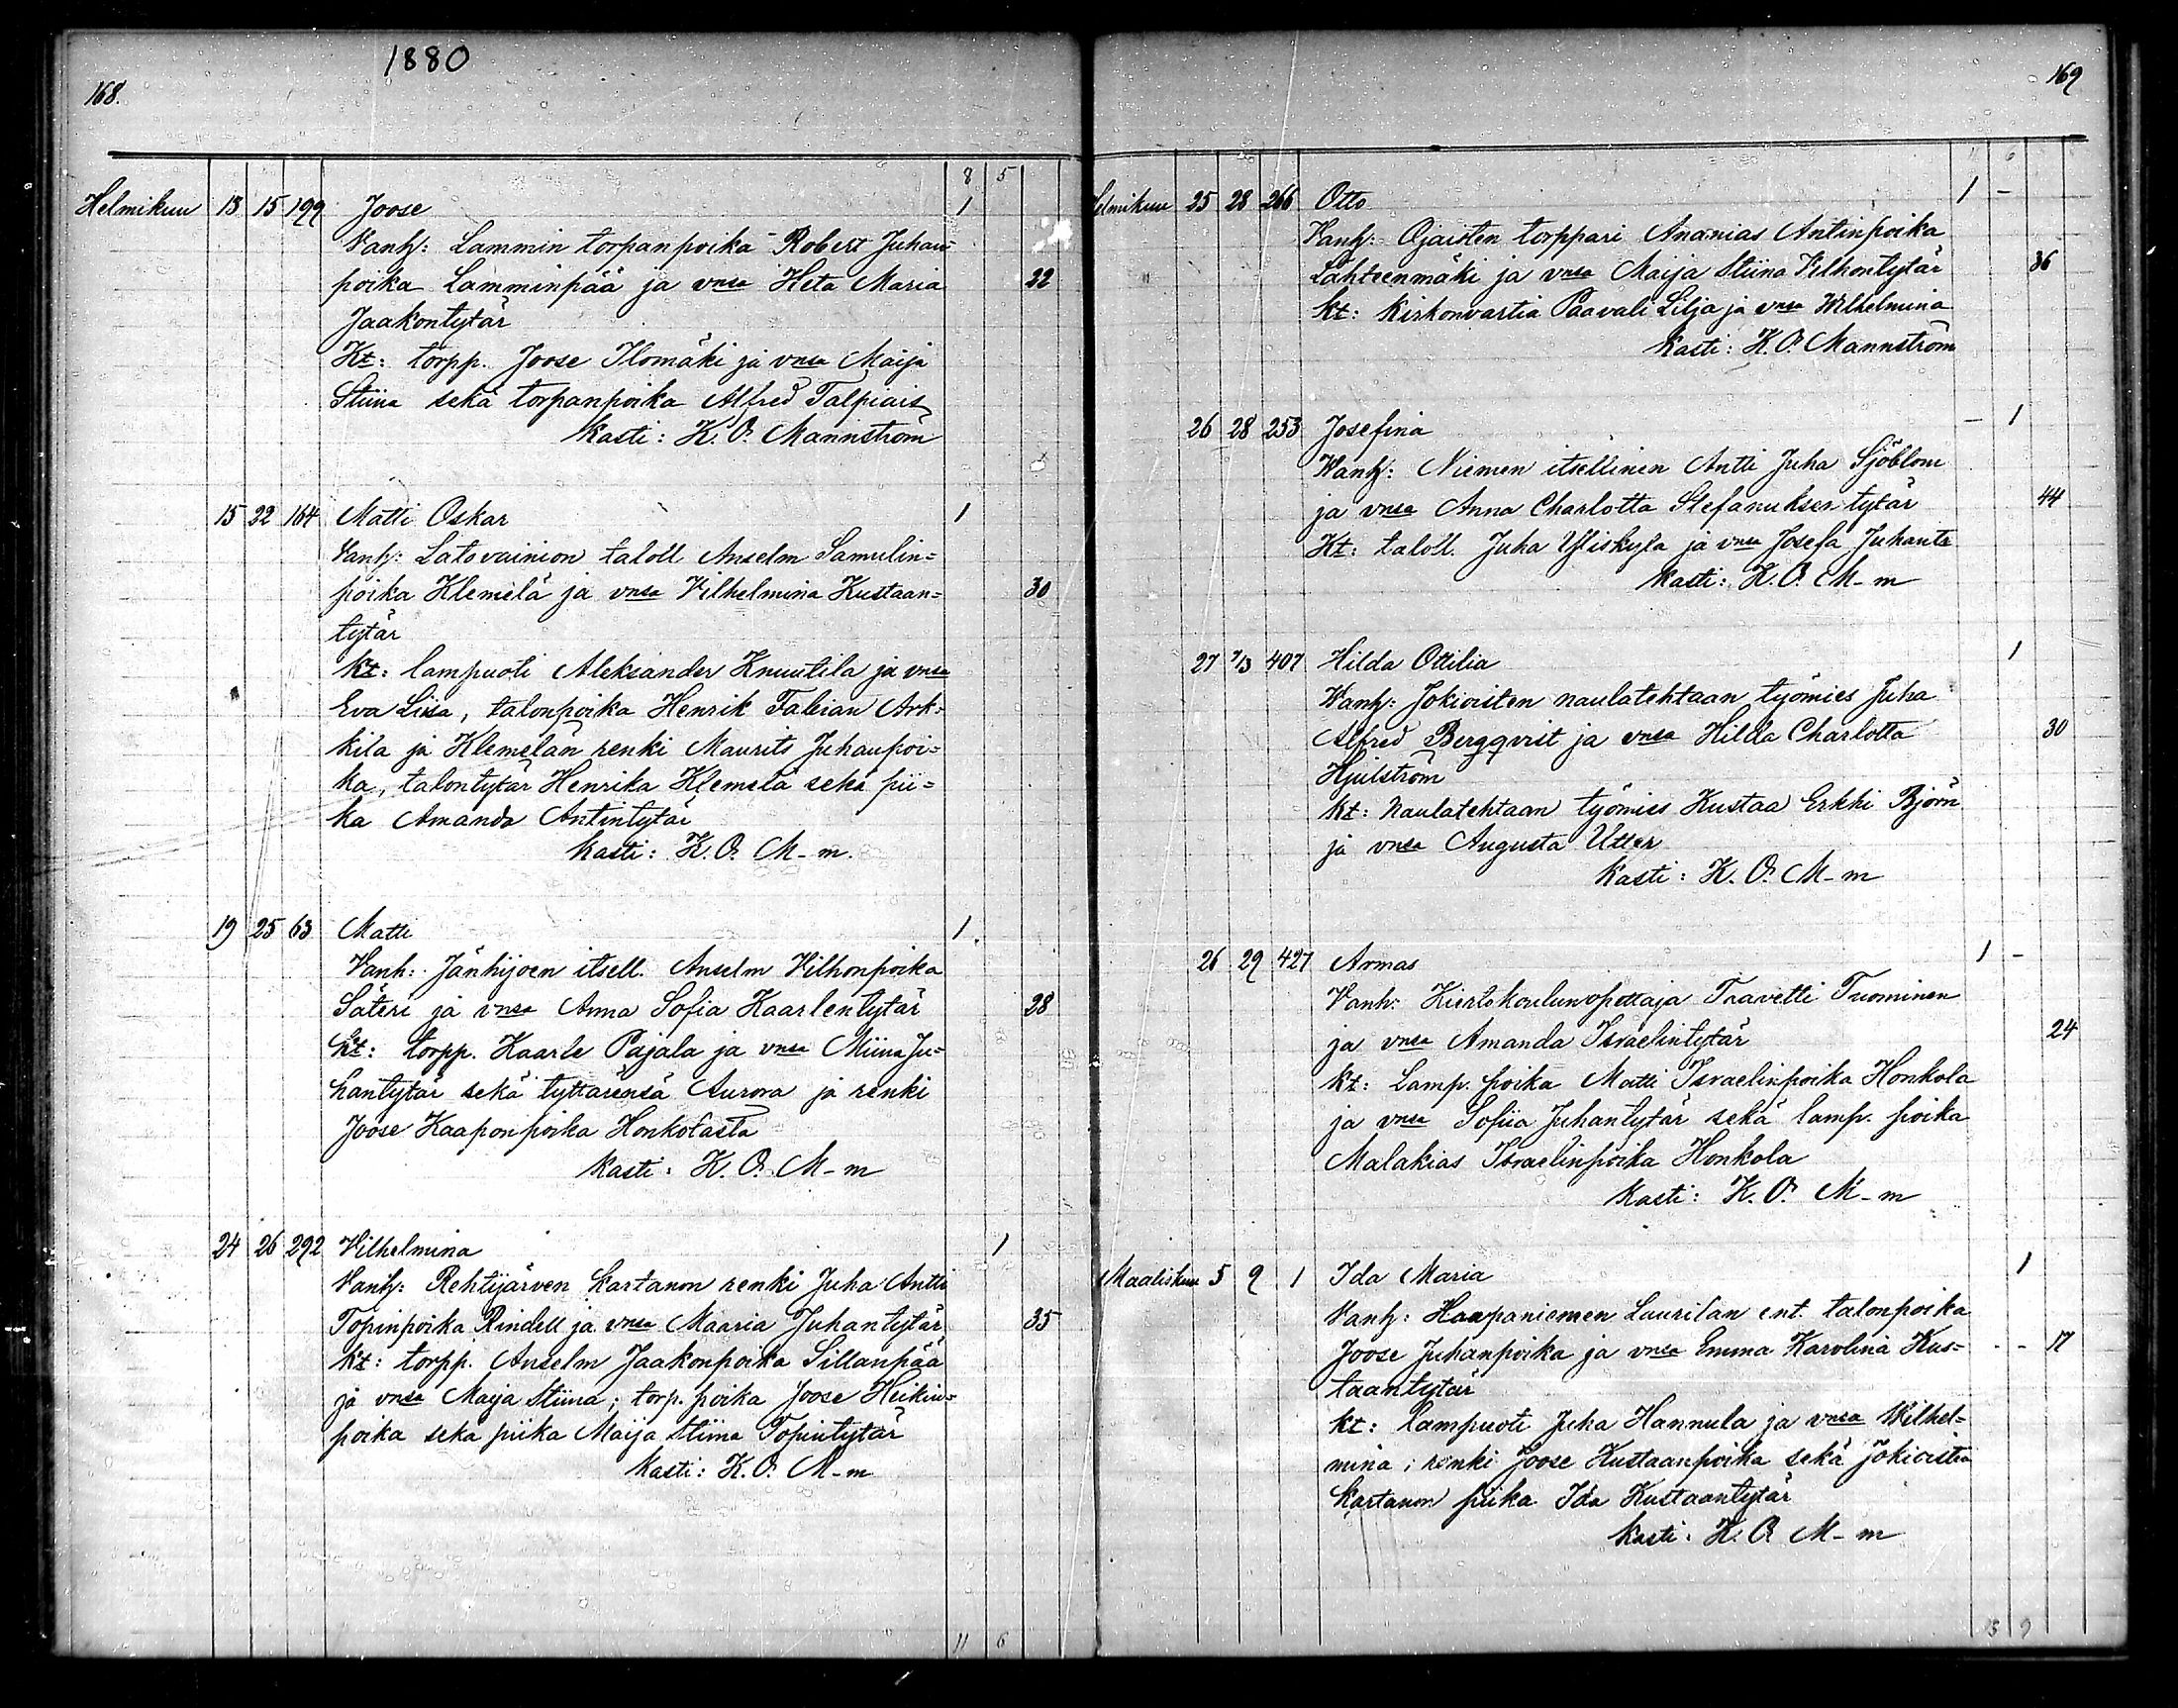 1880
168.
8 5
Helmikuu 13 15 199 Joose 1
Vanh: Lammin torpanpoika Robert Juhan-
poika Lamminpää ja vnsa Heta Maria 22
Jaakontytär
Kt: torpp. Joose Ilomäki ja vnsa Maija
Stiina sekä torpanpoika Alfred Talpiais
Kasti: K. O. Mannström
15 22 164 Matti Oskar 1
Vanh: Latovainion taloll Anselm Samulin=
poika Klemelä ja vnsa Vilhelmina Kustaan= 30
tytär
Kt: lampuoti Aleksander Knuutila ja vnsa
Eva Liisa, talonpoika Henrik Fabian Ark=
kila ja Klemelän renki Maurits Juhanpoi=
ka, talontytär Henrika Klemelä sekä pii=
ka Amanda Antintytär
Kasti: K. O. M-m.
19 25 63 Matti 1
Vanh: Jänhijoen itsell. Anselm Vilhonpoika
Säteri ja vnsa Anna Sofia Kaarlentytär 28
Kt: torpp. Kaarle Pajala ja vnsa Miina Ju=
hantytär sekä tyttärensä Aurora ja renki
Joose Kaaponpoika Honkolasta
Kasti: K. O. M-m
24 26 292 Vilhelmina 1
Vanh: Rehtijärven Kartanon renki Juha Antti
Topinpoika Rindell ja vnsa Maaria Juhantytär 35
Kt: torpp. Anselm Jaakonpoika Sillanpää
ja vnsa Maija Stiina; torp. poika Joose Heikin=
poika sekä piika Maija Stiina Topintytär
Kasti: K. O. M-m
11 6
169
11 6
Helmikuu 25 28 266 Otto 1 -
Vanh: Ojaisten torppari Ananias Antinpoika
Lähteenmäki ja vnsa Maija Stiina Vilhontytär 36
Kt: Kirkonvartia Paavali Lilja ja vnsa Wilhelmina
Kasti: K. O. Mannström
26 28 253 Josefina - 1
Vanh: Niemen itsellinen Antti Juha Sjöblom
ja vnsa Anna Charlotta Stefanuksen tytär 44
Kt: taloll. Juha Yliskylä ja vnsa Josefa Juhantr
Kasti: K. O. M-m
27 7/3 407 Hilda Ottilia 1
Vanh: Jokioisten naulatehtaan työmies Juha
Alfred Bergqvist ja vnsa Hilda Charlotta 30
Hjulström
Kt: Naulatehtaan työmies Kustaa Erkki Björn
ja vnsa Augusta Utter
Kasti: K. O. M-m
26 29 427 Armas 1 -
Vanh: Kiertokoulunopettaja Taavetti Tuominen
ja vnsa Amanda Israelintytär 24
Kt: Lamp. poika Matti Israelinpoika Honkola
ja vnsa Sofiia Juhantytär sekä lamp. poika
Malakias Israelinpoika Honkola
Kasti: K. O. M-m
Maaliskuu 5 9 1 Ida Maria 1
Vanh: Haapaniemen Laurilan ent. talonpoika
Joose Juhanpoika ja vnsa Emma Karolina Kus= - - 17
taantytär
Kt: lampuoti Juha Hannula ja vnsa Wilhel=
mina; renki Joose Kustaanpoika sekä Jokioisten
Kartanon piika Ida Kustaantytär
Kasti: K. O. M-m
13 9